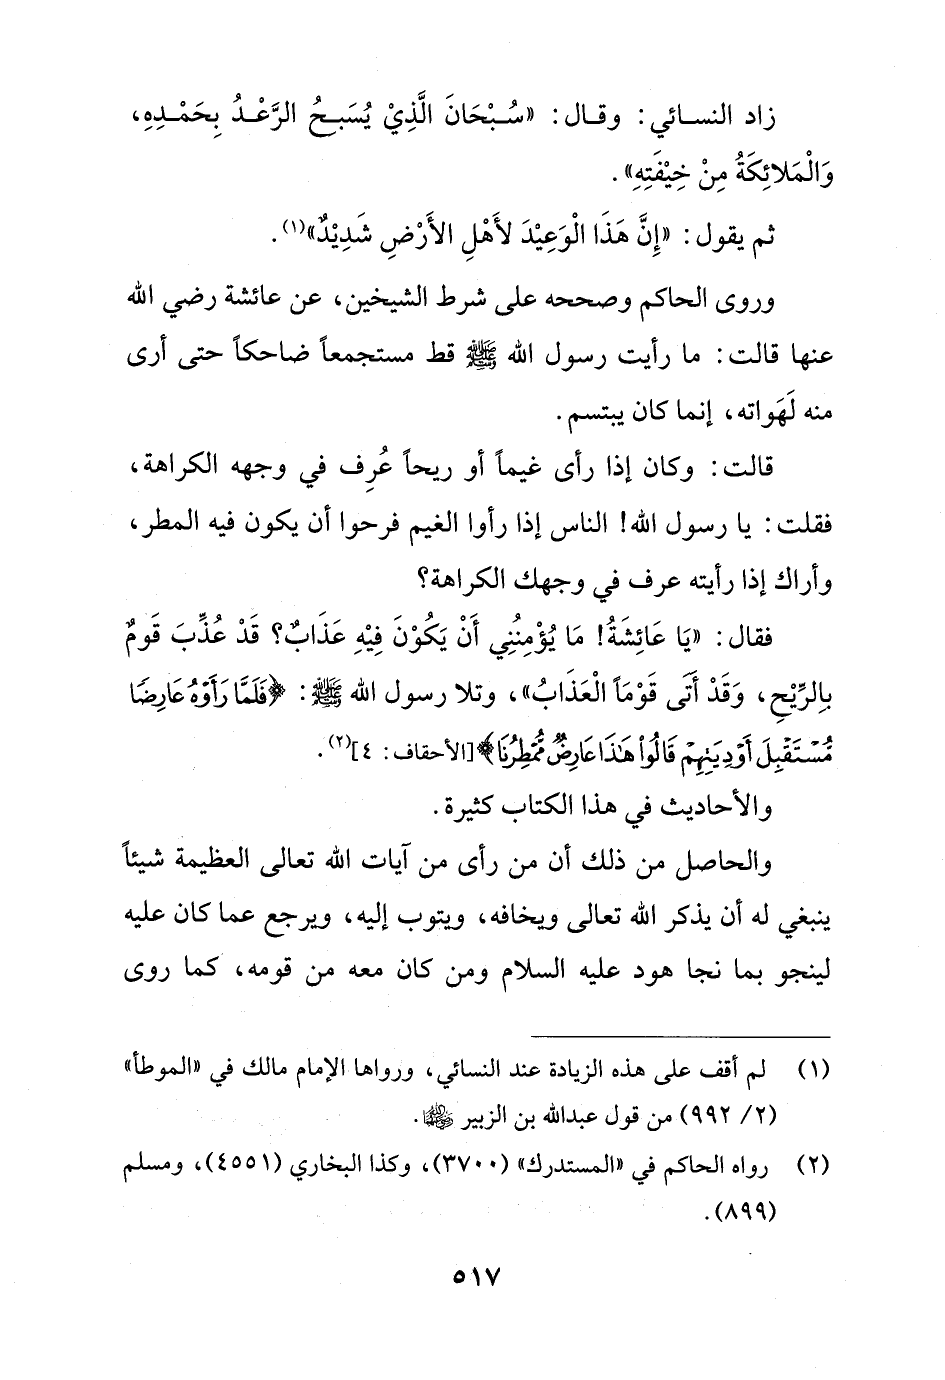 زاد النسائي: وقال: «سُبْحَانَ الَّذِيْ يُسَبحُ الرَّعْدُ بِحَمْدِهِ،
وَالْمَلائِكَةُ مِنْ خِيْفَتِهِ».
ثم يقول: «إِنَّ هَذَا الْوَعِيْدَ لأَهْلِ الأَرْضِ شَدِيْدٌ»(١).
وروى الحاكم وصححه على شرط الشيخين، عن عائشة رضي الله
عنها قالت: ما رأيت رسول الله ﷺ قط مستجمعاً ضاحكاً حتى أرى
منه لَهَواته، إنما كان يبتسم.
قالت: وكان إذا رأى غيماً أو ريحاً عُرِف في وجهه الكراهة،
فقلت: يا رسول الله! الناس إذا رأوا الغيم فرحوا أن يكون فيه المطر،
وأراك إذا رأيته عرف في وجهك الكراهة؟
فقال: «يَا عَائِشَةُ! مَا يُؤْمِنُنِي أَنْ يَكُوْنَ فِيْهِ عَذَابٌ؟ قَدْ عُذِّبَ قَومٌ
بِالرِّيْحِ، وَقَدْ أَتَى قَوْمَاً الْعَذَابُ»، وتلا رسول الله ﷺ: ﴿فَلَمَّا رَأَوْهُ عَارِضًا
مُّسْتَقْبِلَ أَوْدِيَتِهِمْ قَالُوا۟ هَٰذَا عَارِضٌ مُّمْطِرُنَا﴾ [الأحقاف: ٤](٢).
والأحاديث في هذا الكتاب كثيرة.
والحاصل من ذلك أن من رأى من آيات الله تعالى العظيمة شيئاً
ينبغي له أن يذكر الله تعالى ويخافه، ويتوب إليه، ويرجع عما كان عليه
لينجو بما نجا هود عليه السلام ومن كان معه من قومه، كما روى
(١) لم أقف على هذه الزيادة عند النسائي، ورواها الإمام مالك في «الموطأ»
(٢/ ٩٩٢) من قول عبدالله بن الزبير رضي الله عنه.
(٢) رواه الحاكم في «المستدرك» (٣٧٠٠)، وكذا البخاري (٤٥٥١)، ومسلم
(٨٩٩).
٥١٧